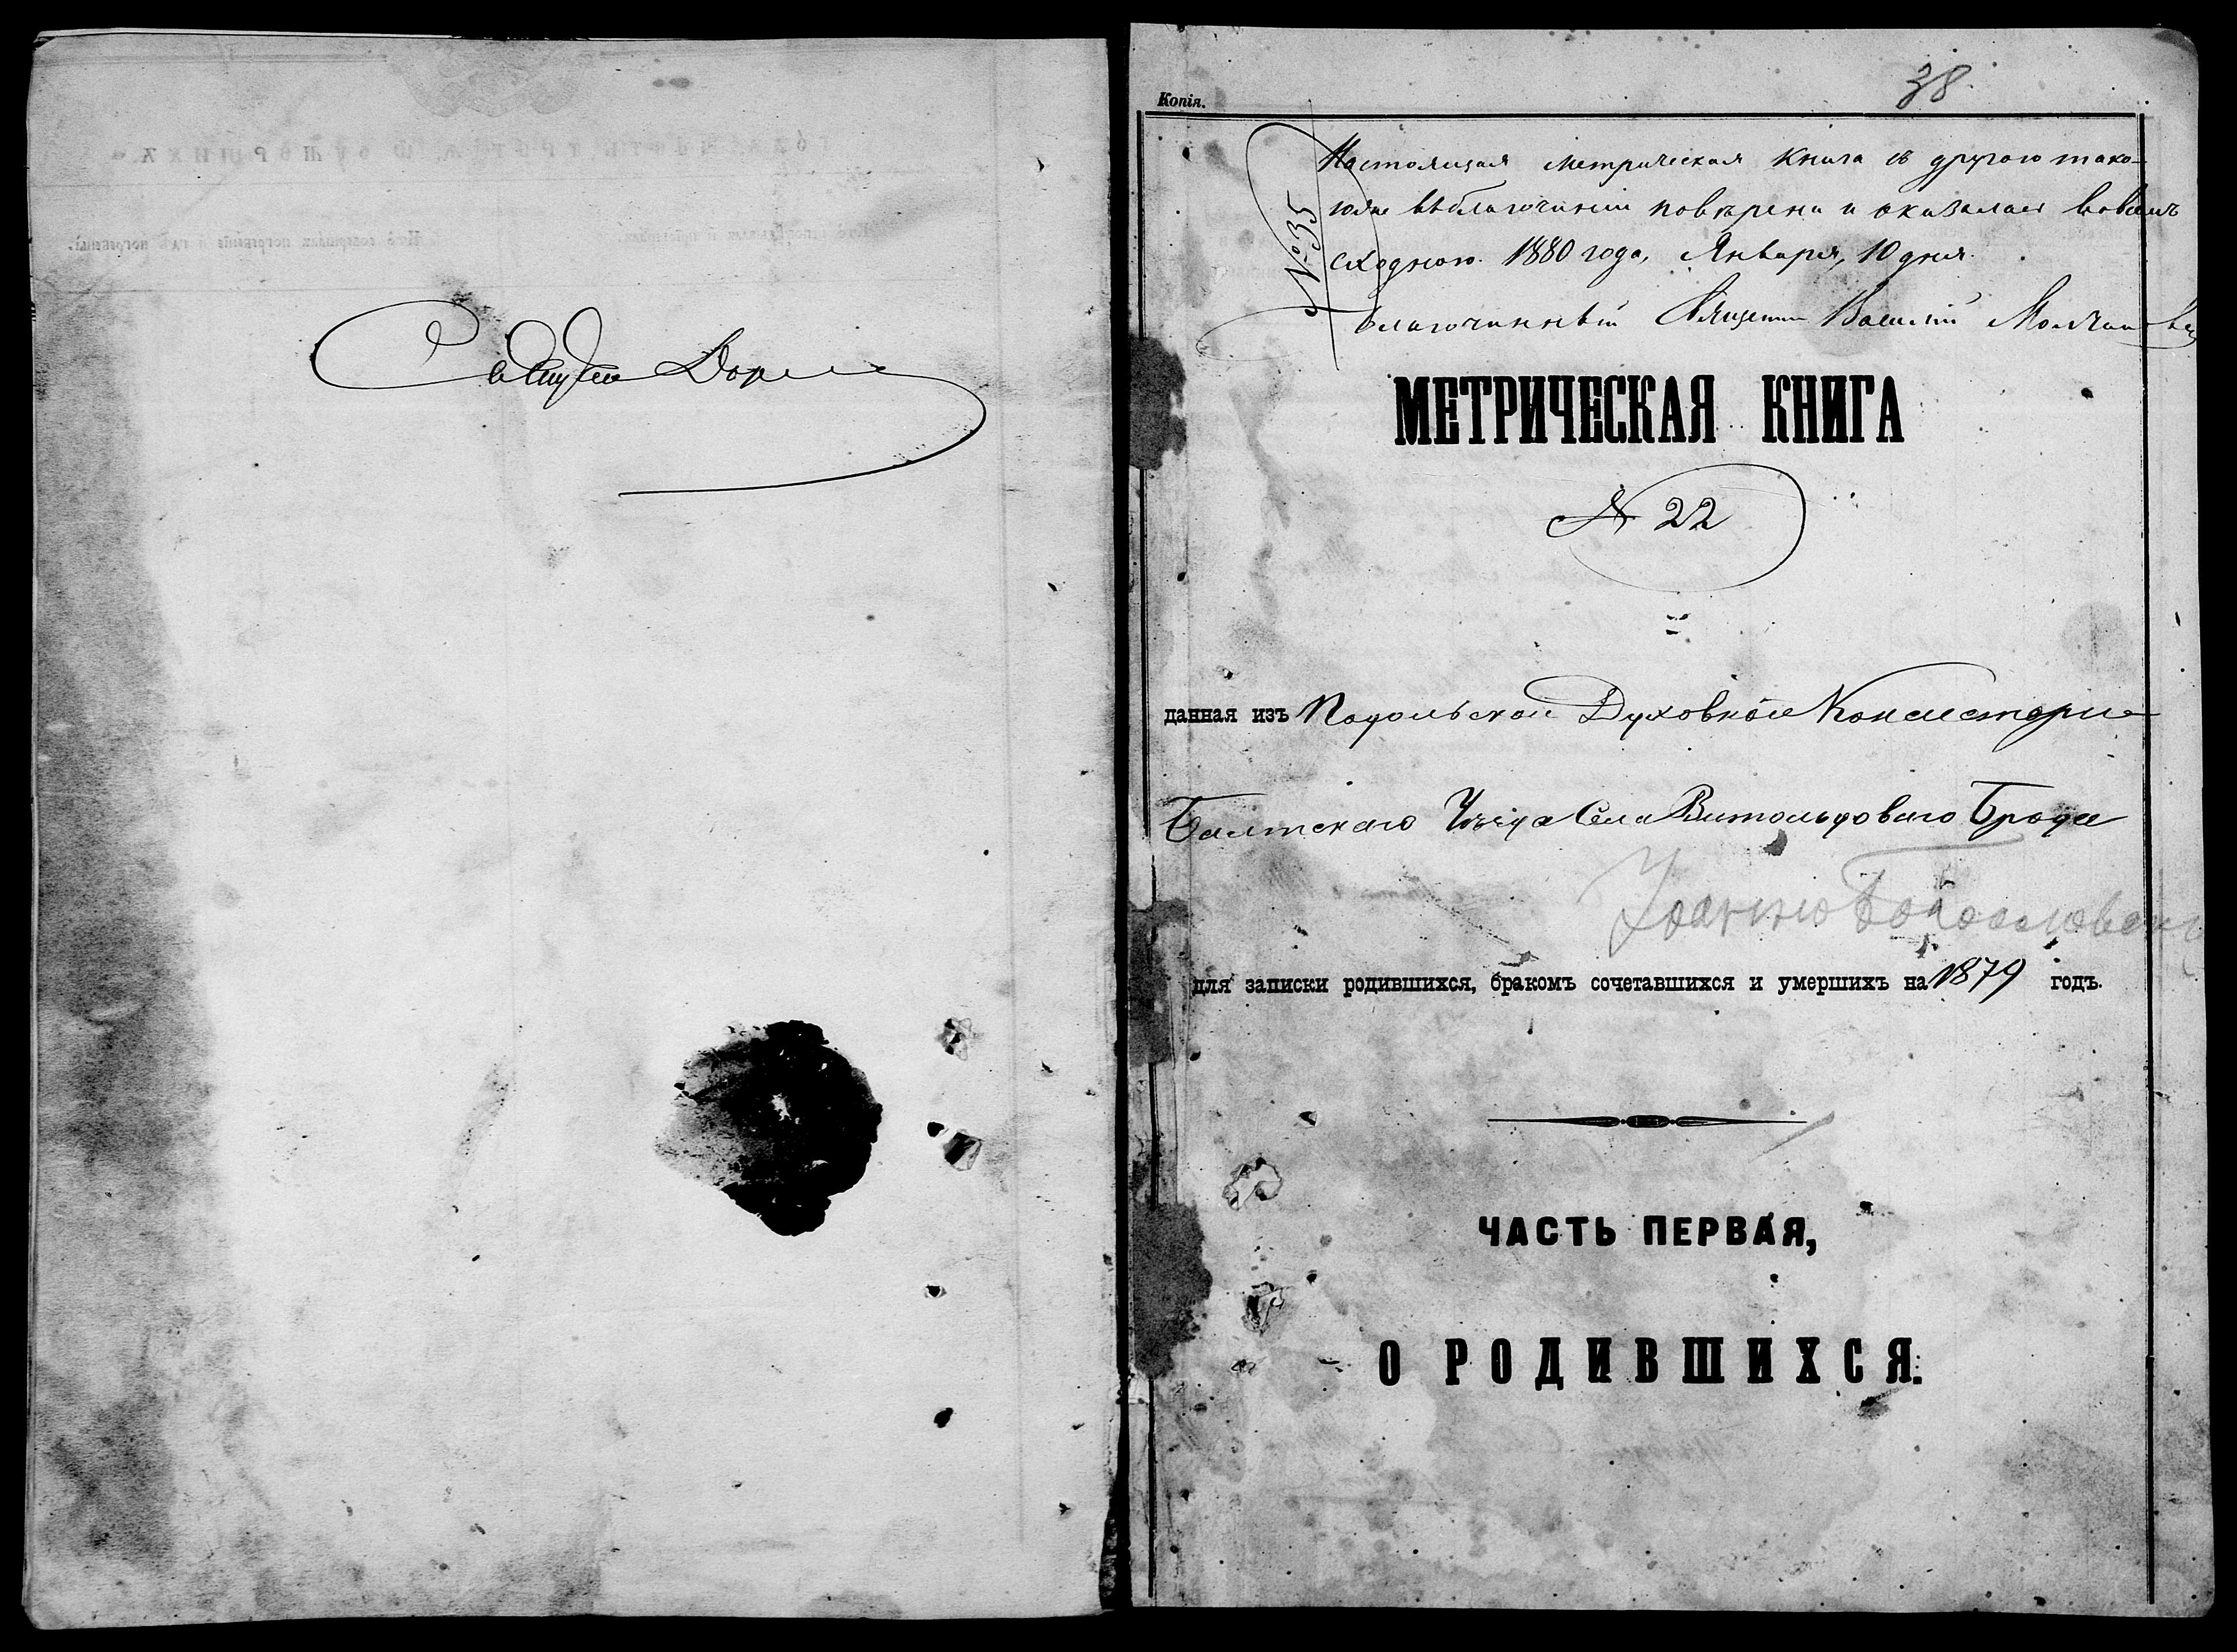 Копія.
38
№ 35
Настоящая метрическая книга съ другою тако-
юже въ благочиніи повѣрена и оказалась во всемъ
сходною. 1880 года, Января, 10 дня.
Благочинный Священник Василій
МЕТРИЧЕСКАЯ КНИГА
№ 22
данная изъ Подольской Духовной Консисторіи
Балтскаго Уѣзда Села Витольдоваго Брода
Іоанно Богословск
для записки родившихся, бракомъ сочетавшихся и умершихъ на 1879 годъ.
ЧАСТЬ ПЕРВАЯ,
О РОДИВШИХСЯ.